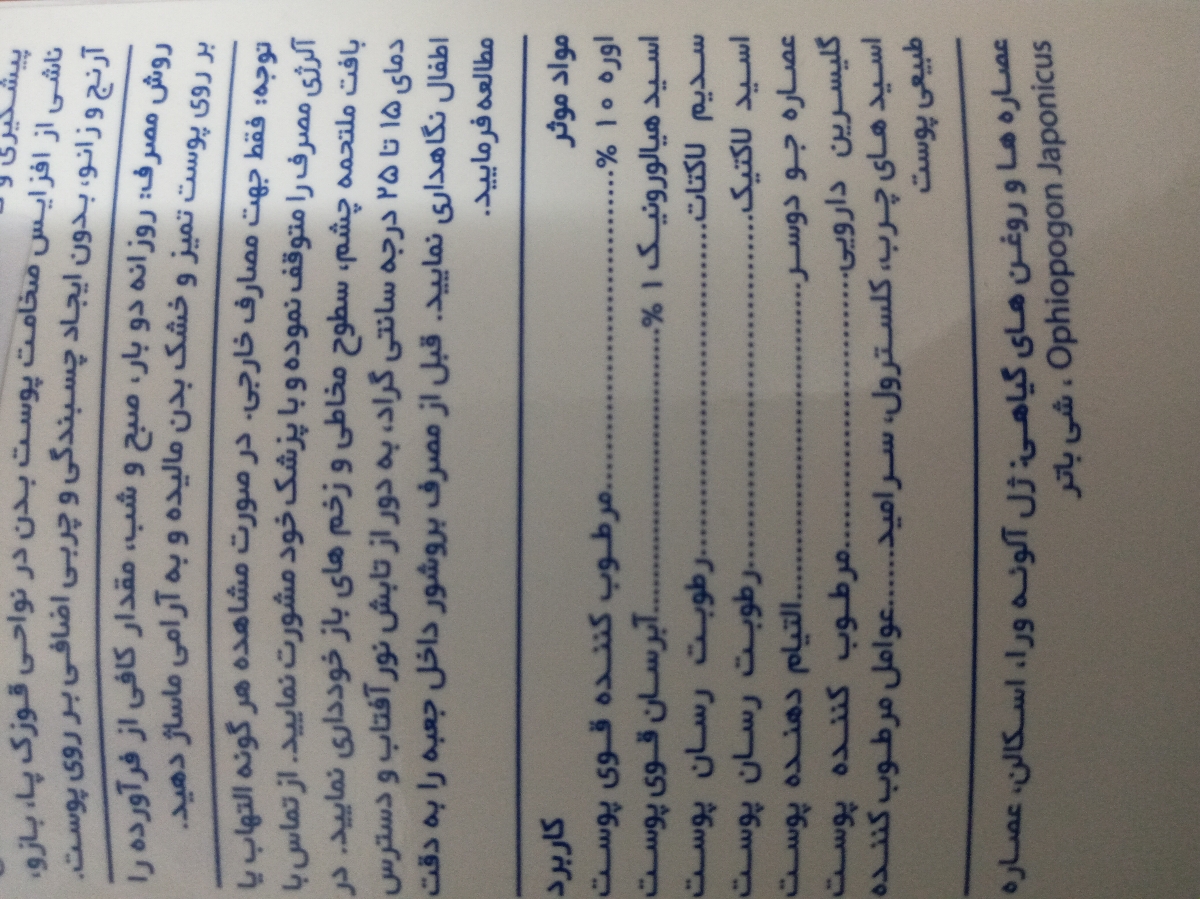 پیشگیری و
ناشی از افزایش ضخامت پوست بدن در نواحی قوزک پا، بازو،
آرنج و زانو، بدون ایجاد چسبندگی و چربی اضافی بر روی پوست.
روش مصرف: روزانه دو بار، صبح و شب، مقدار کافی از فرآورده را
بر روی پوست تمیز و خشک بدن مالیده و به آرامی ماساژ دهید.
توجه: فقط جهت مصارف خارجی. در صورت مشاهده هر گونه التهاب یا
آلرژی مصرف را متوقف نموده و با پزشک خود مشورت نمایید. از تماس با
بافت ملتحمه چشم، سطوح مخاطی و زخم های باز خودداری نمایید. در
دمای ۱۵ تا ۲۵ درجه سانتی گراد، به دور از تابش نور آفتاب و دسترس
اطفال نگاهداری نمایید. قبل از مصرف بروشور داخل جعبه را به دقت
مطالعه فرمایید.
مواد موثر کاربرد
اوره ۱۰ %..........مرطوب کننده قوی پوست
اسید هیالورونیک ۱ %..........آبرسان قوی پوست
سدیم لاکتات..........رطوبت رسان پوست
اسید لاکتیک..........رطوبت رسان پوست
عصاره جو دوسر..........التیام دهنده پوست
گلیسرین دارویی..........مرطوب کننده پوست
اسید های چرب، کلسترول، سرامید.....عوامل مرطوب کننده
طبیعی پوست
عصاره ها و روغن های گیاهی: ژل آلوئه ورا، اسکالن، عصاره
Ophiopogon Japonicus ، شی باتر